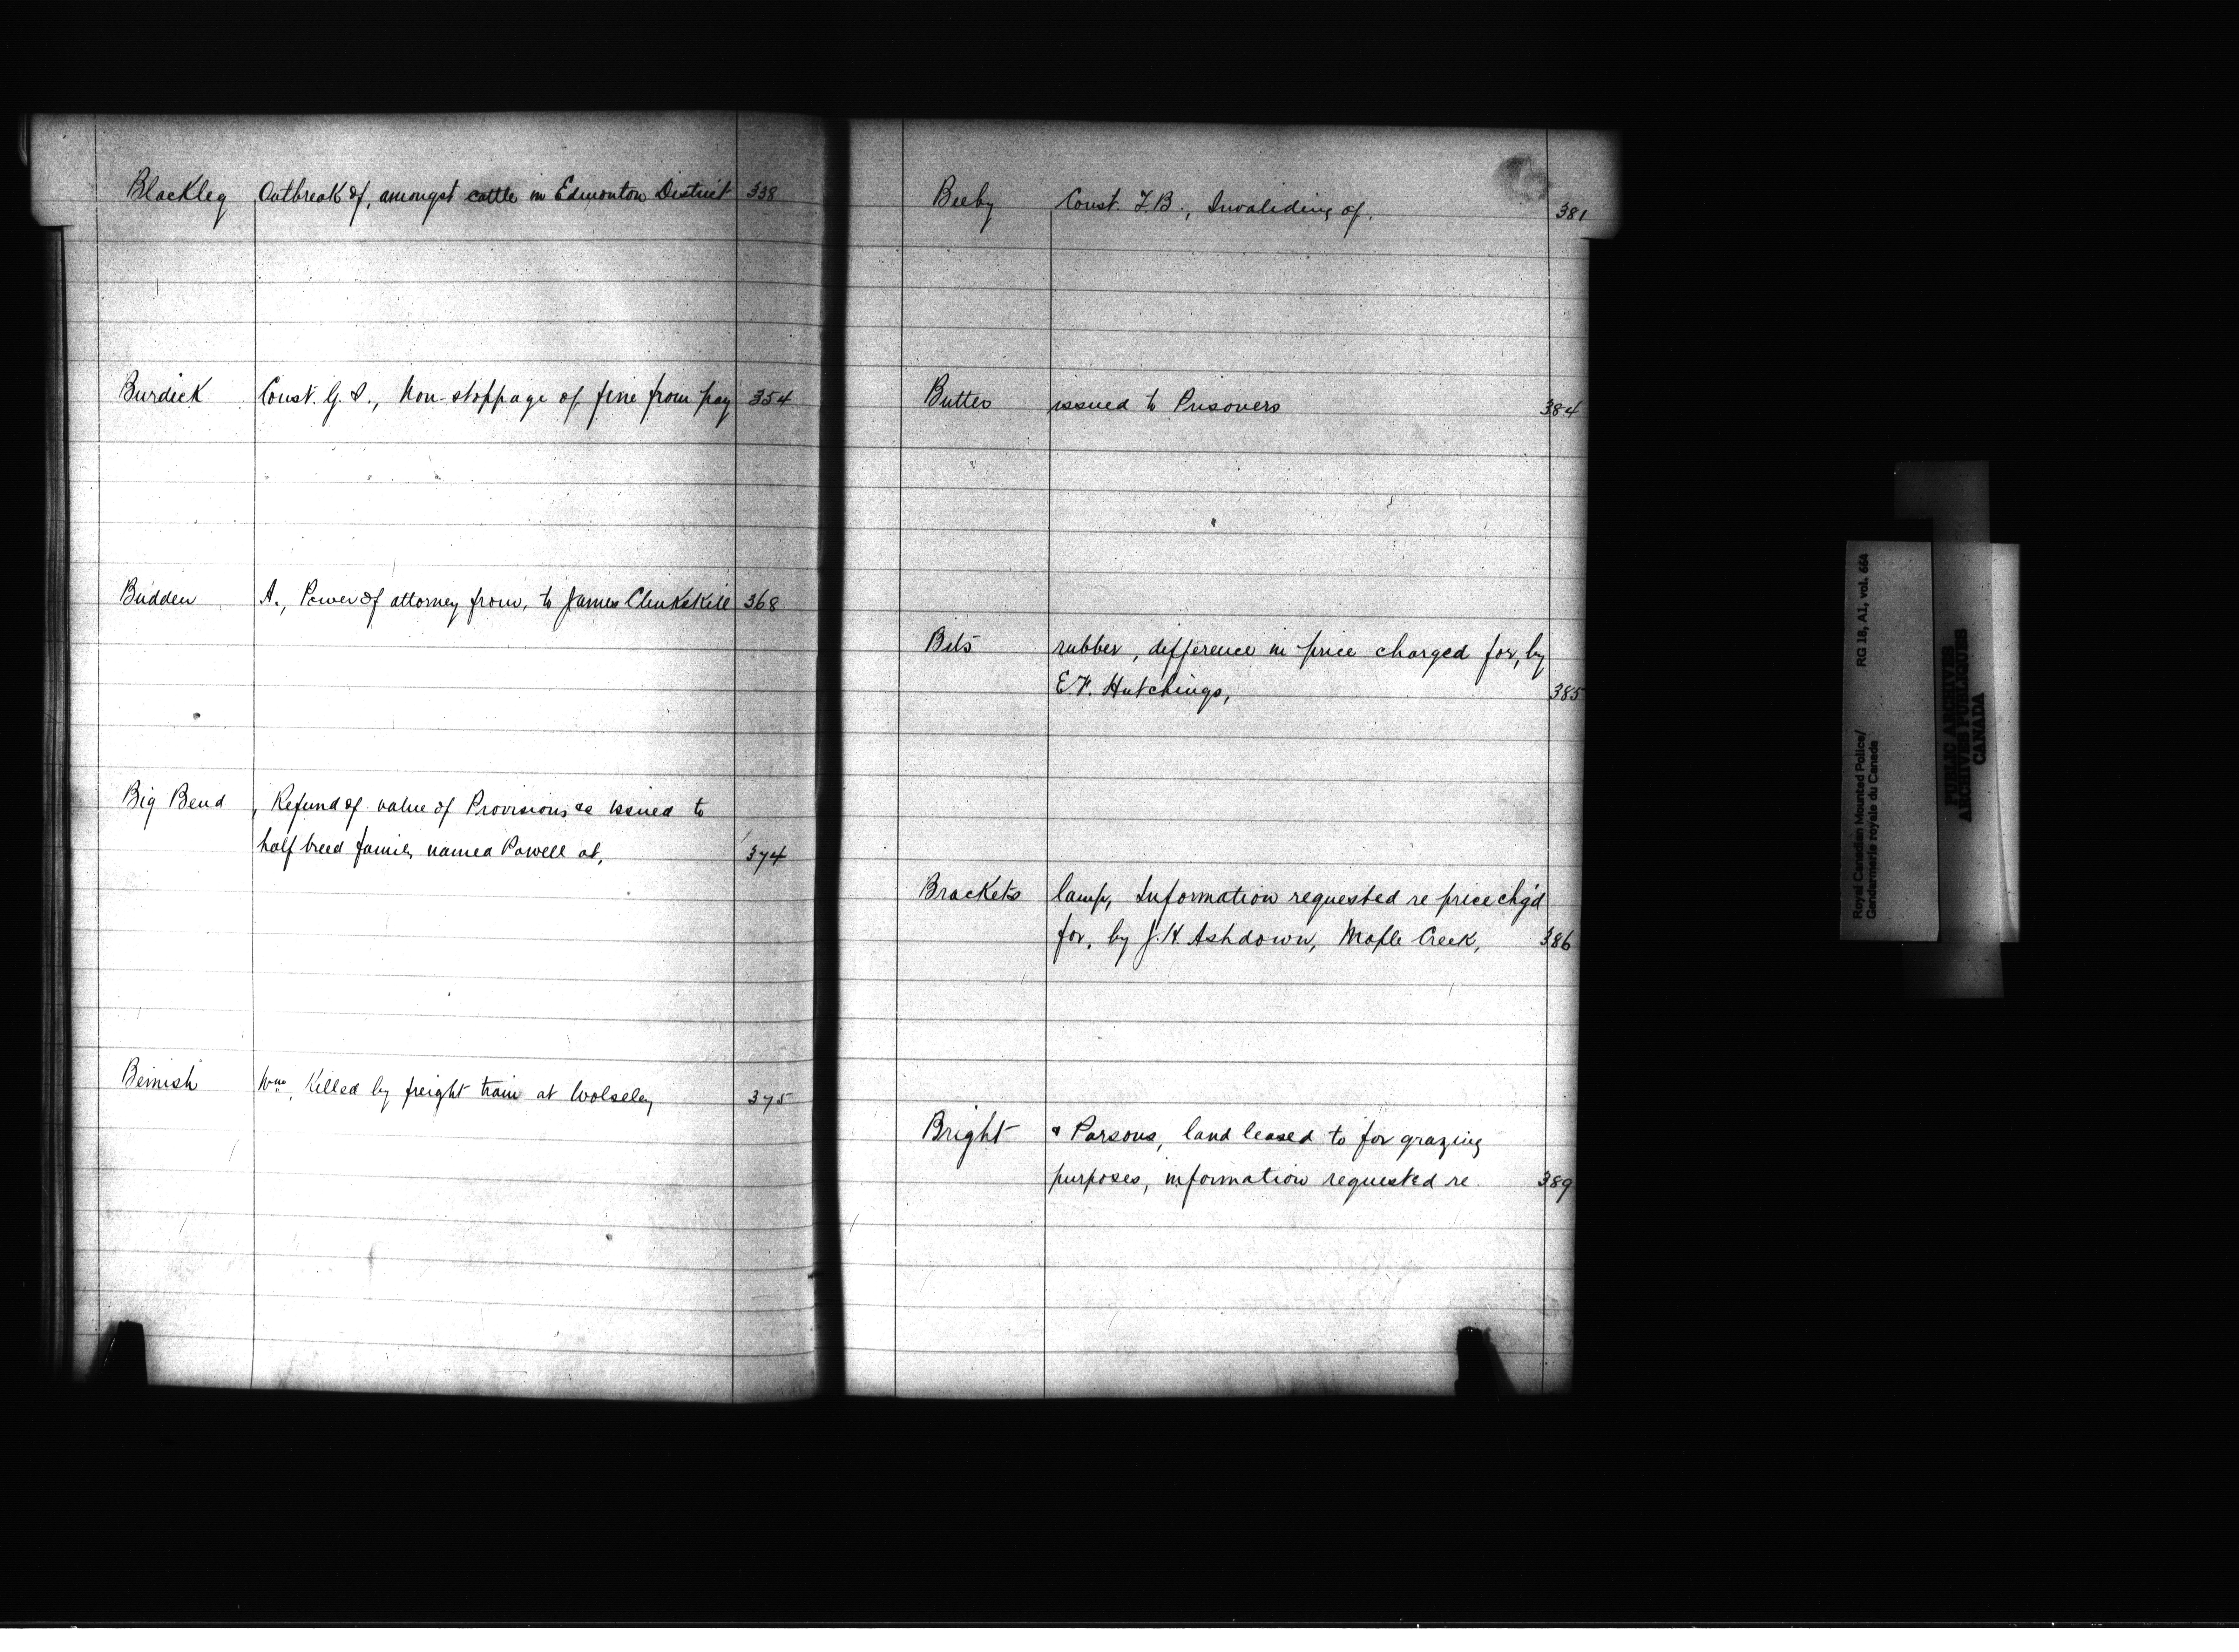 Blackleg Outbreak of, amongst cattle in Edmonton District 338
Burdick Const. G. S., Non-stoppage of fine from pay 354
Budden A., Power of attorney from, to James Clinkskill 368
Big Bend , Refund of value of Provisions &c issued to
half breed family named Powell at, 374
Bemish Wm, Killed by freight train at Wolseley 375
Beeby Const. F.B., Invaliding of. 381
Butter issued to Prisoners 384
Bits rubber, difference in price charged for, by
E.F. Hutchings, 385
Brackets lamp, Information requested re price chg'd
for, by J.H. Ashdown, Maple Creek, 386
Bright & Parsons, land leased to for grazing
purposes, information requested re. 389
Royal Canadian Mounted Police/ RG 18, A1, vol. 664
Gendarmerie royale du Canada
PUBLIC ARCHIVES
ARCHIVES PUBLIQUES
CANADA